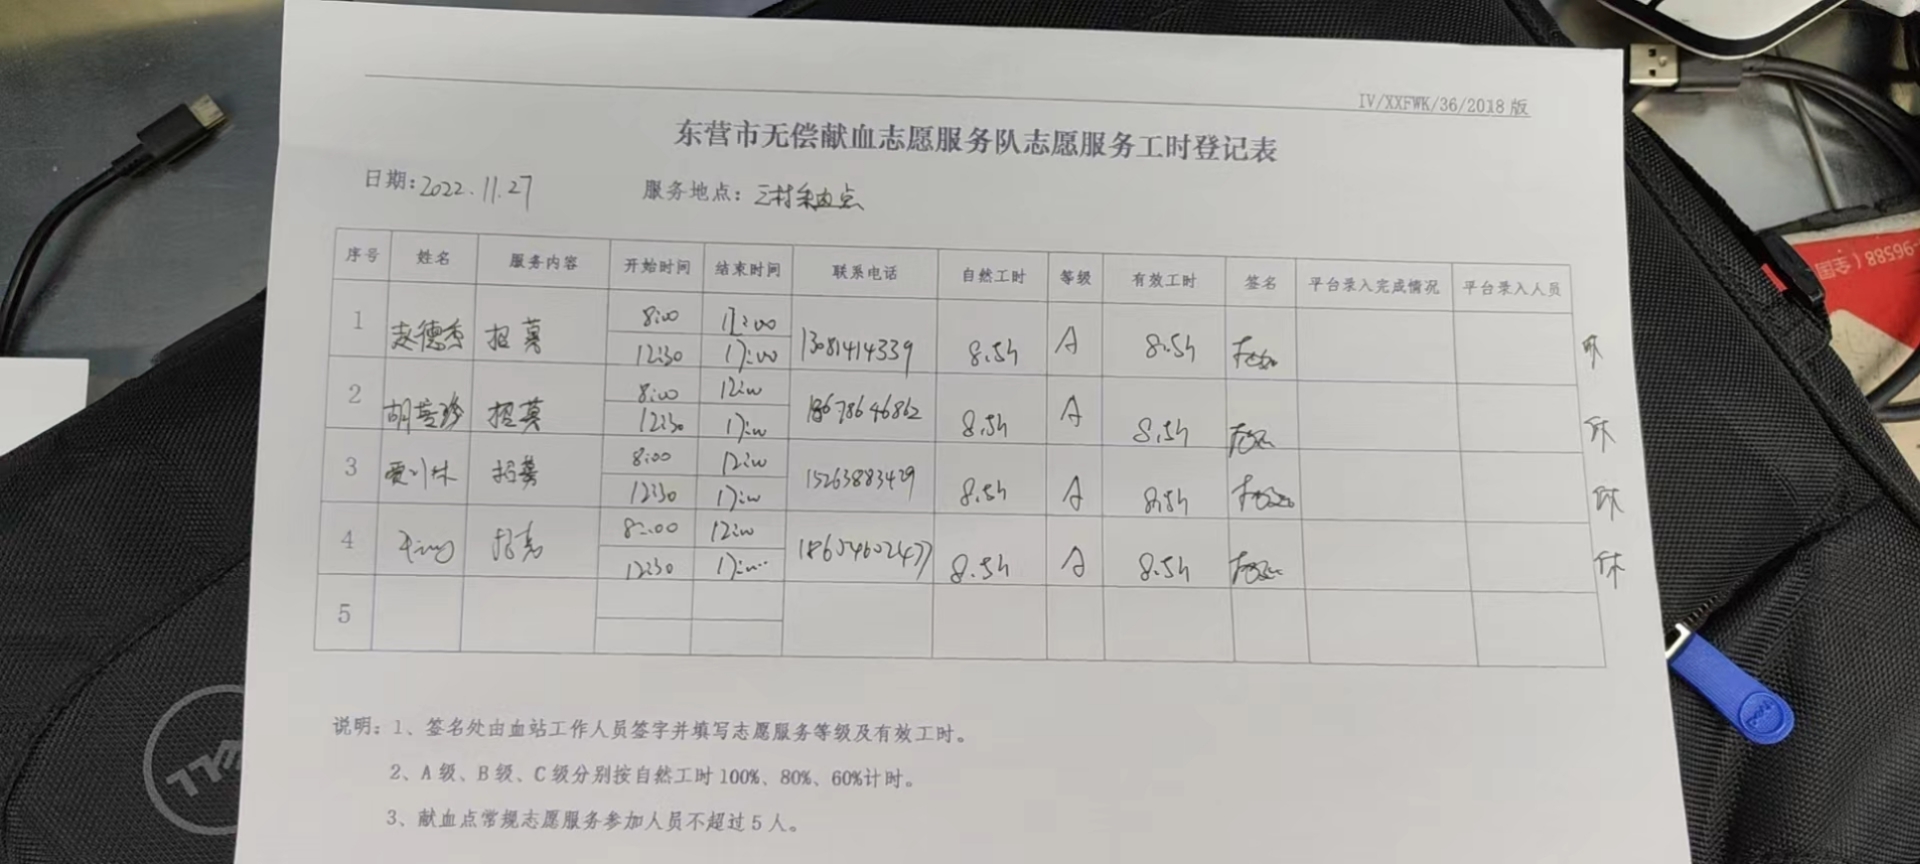 IV/XXFWK/36/2018 版
东营市无偿献血志愿服务队志愿服务工时登记表
日期:2022.11.27 服务地点:三村采血点
序号 姓名 服务内容 开始时间 结束时间 联系电话 自然工时 等级 有效工时 签名 平台录入完成情况 平台录入人员
1 赵德香 招募 8:00 12:00 13081414339 8.5h A 8.5h
12:30 17:00
2 招募 8:00 12:00 18678646862 8.5h A 8.5h
12:30 17:00
3 贾川林 招募 8:00 12:00 15263883429 8.5h A 8.5h
12:30 17:00
4 招募 8:00 12:00 18654602477 8.5h A 8.5h
12:30 17:00
5
说明:1、签名处由血站工作人员签字并填写志愿服务等级及有效工时。
2、A 级、B 级、C 级分别按自然工时 100%、80%、60%计时。
3、献血点常规志愿服务参加人员不超过 5 人。
96588(全国
DELL